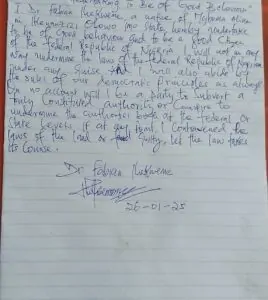 Undertaking to Be of Good Behaviour
I, Dr. Fabian Ihekweme, a native of Ngboma
in Ikeduru Imo State, hereby undertake
to be of Good behaviour and to be a Good citizen
of the Federal Republic of Nigeria. I will not in any
way undermine the laws of the Federal Republic of Nigeria
under any guise. I will also abide by
the rules of our democratic principles as always.
On no account will I be a party to subvert a
Duly Constituted authority or Conspire to
undermine the authority both at the Federal or
State levels. If at any time, I contravened the
laws of the land or guilty, let the law takes
its Course.
Dr Fabian Ihekweme
26-01-25